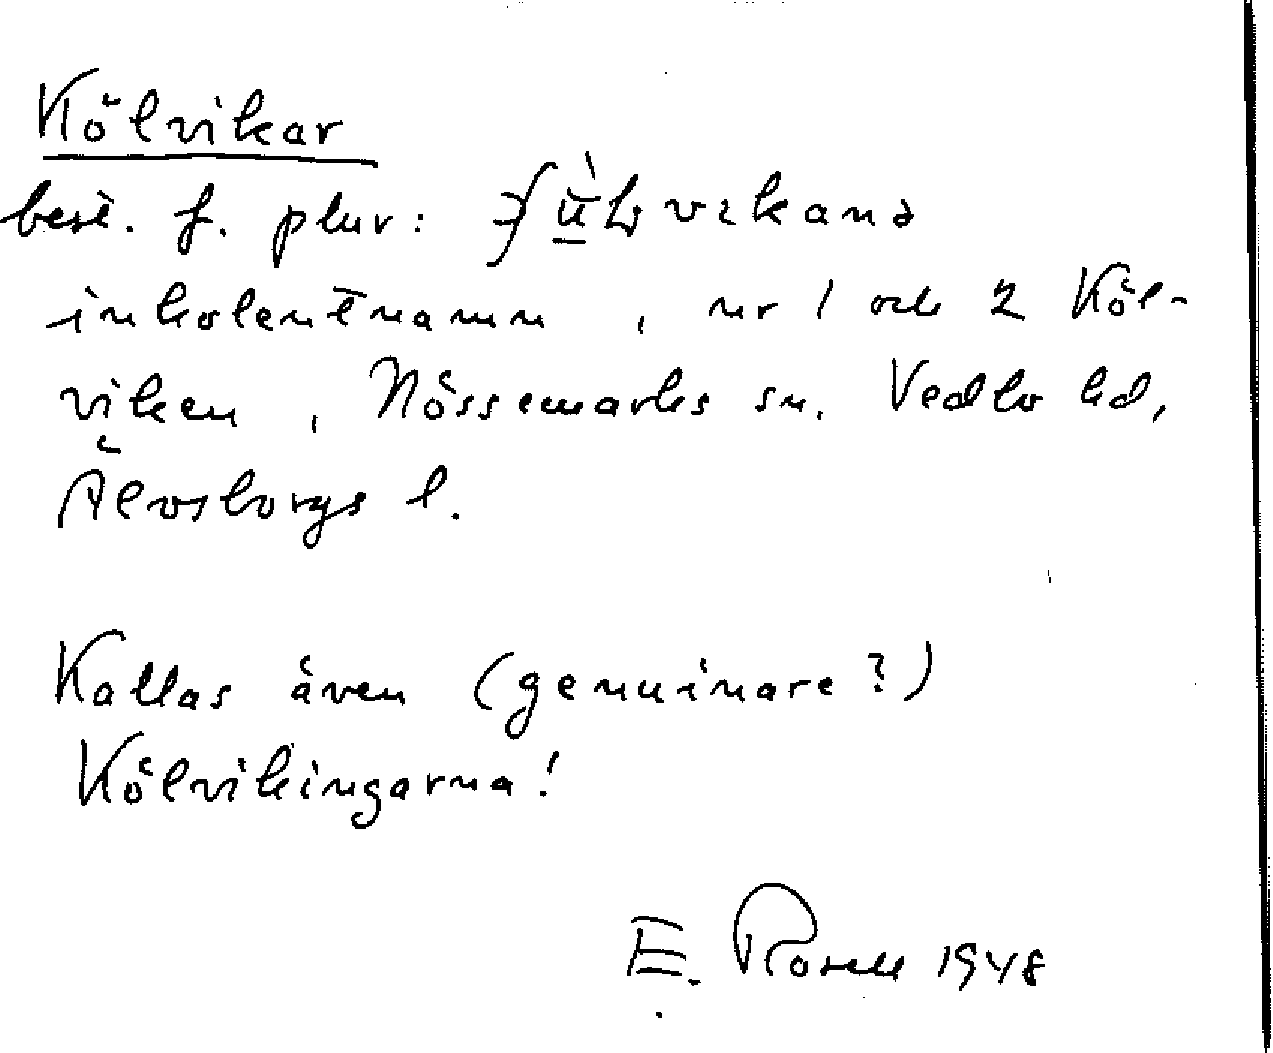 Kölvikar
best. f. plur:
inkolentnamn, nr 1 och 2 Köl-
viken, Nössemarks sn. Vedbo hd,
Älvsborgs l.
Kallas även (genuinare?)
Kölvikingarna!
E. Rosell 1948